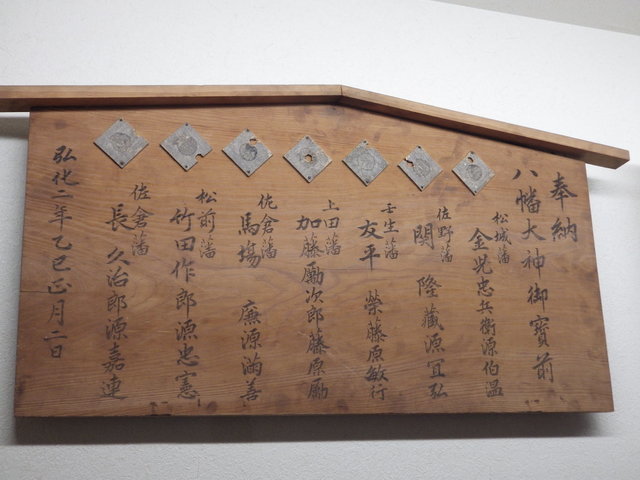 奉納
八幡大神御寳前
松城藩
金児忠兵衛源伯温
佐野藩
関 隆蔵源冝弘
壬生藩
友平 榮藤原敏行
上田藩
加藤勵次郎藤原勵
佐倉藩
馬塲 廉源満善
松前藩
竹田作郎源忠憲
佐倉藩
長 久治郎源嘉連
弘化二年乙巳正月二日